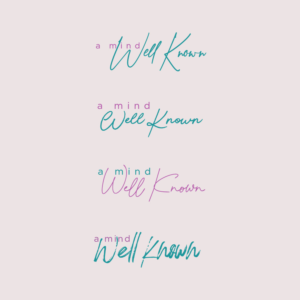 a mind
Well Known
a mind
Well Known
a mind
Well Known
a mind
Well Known